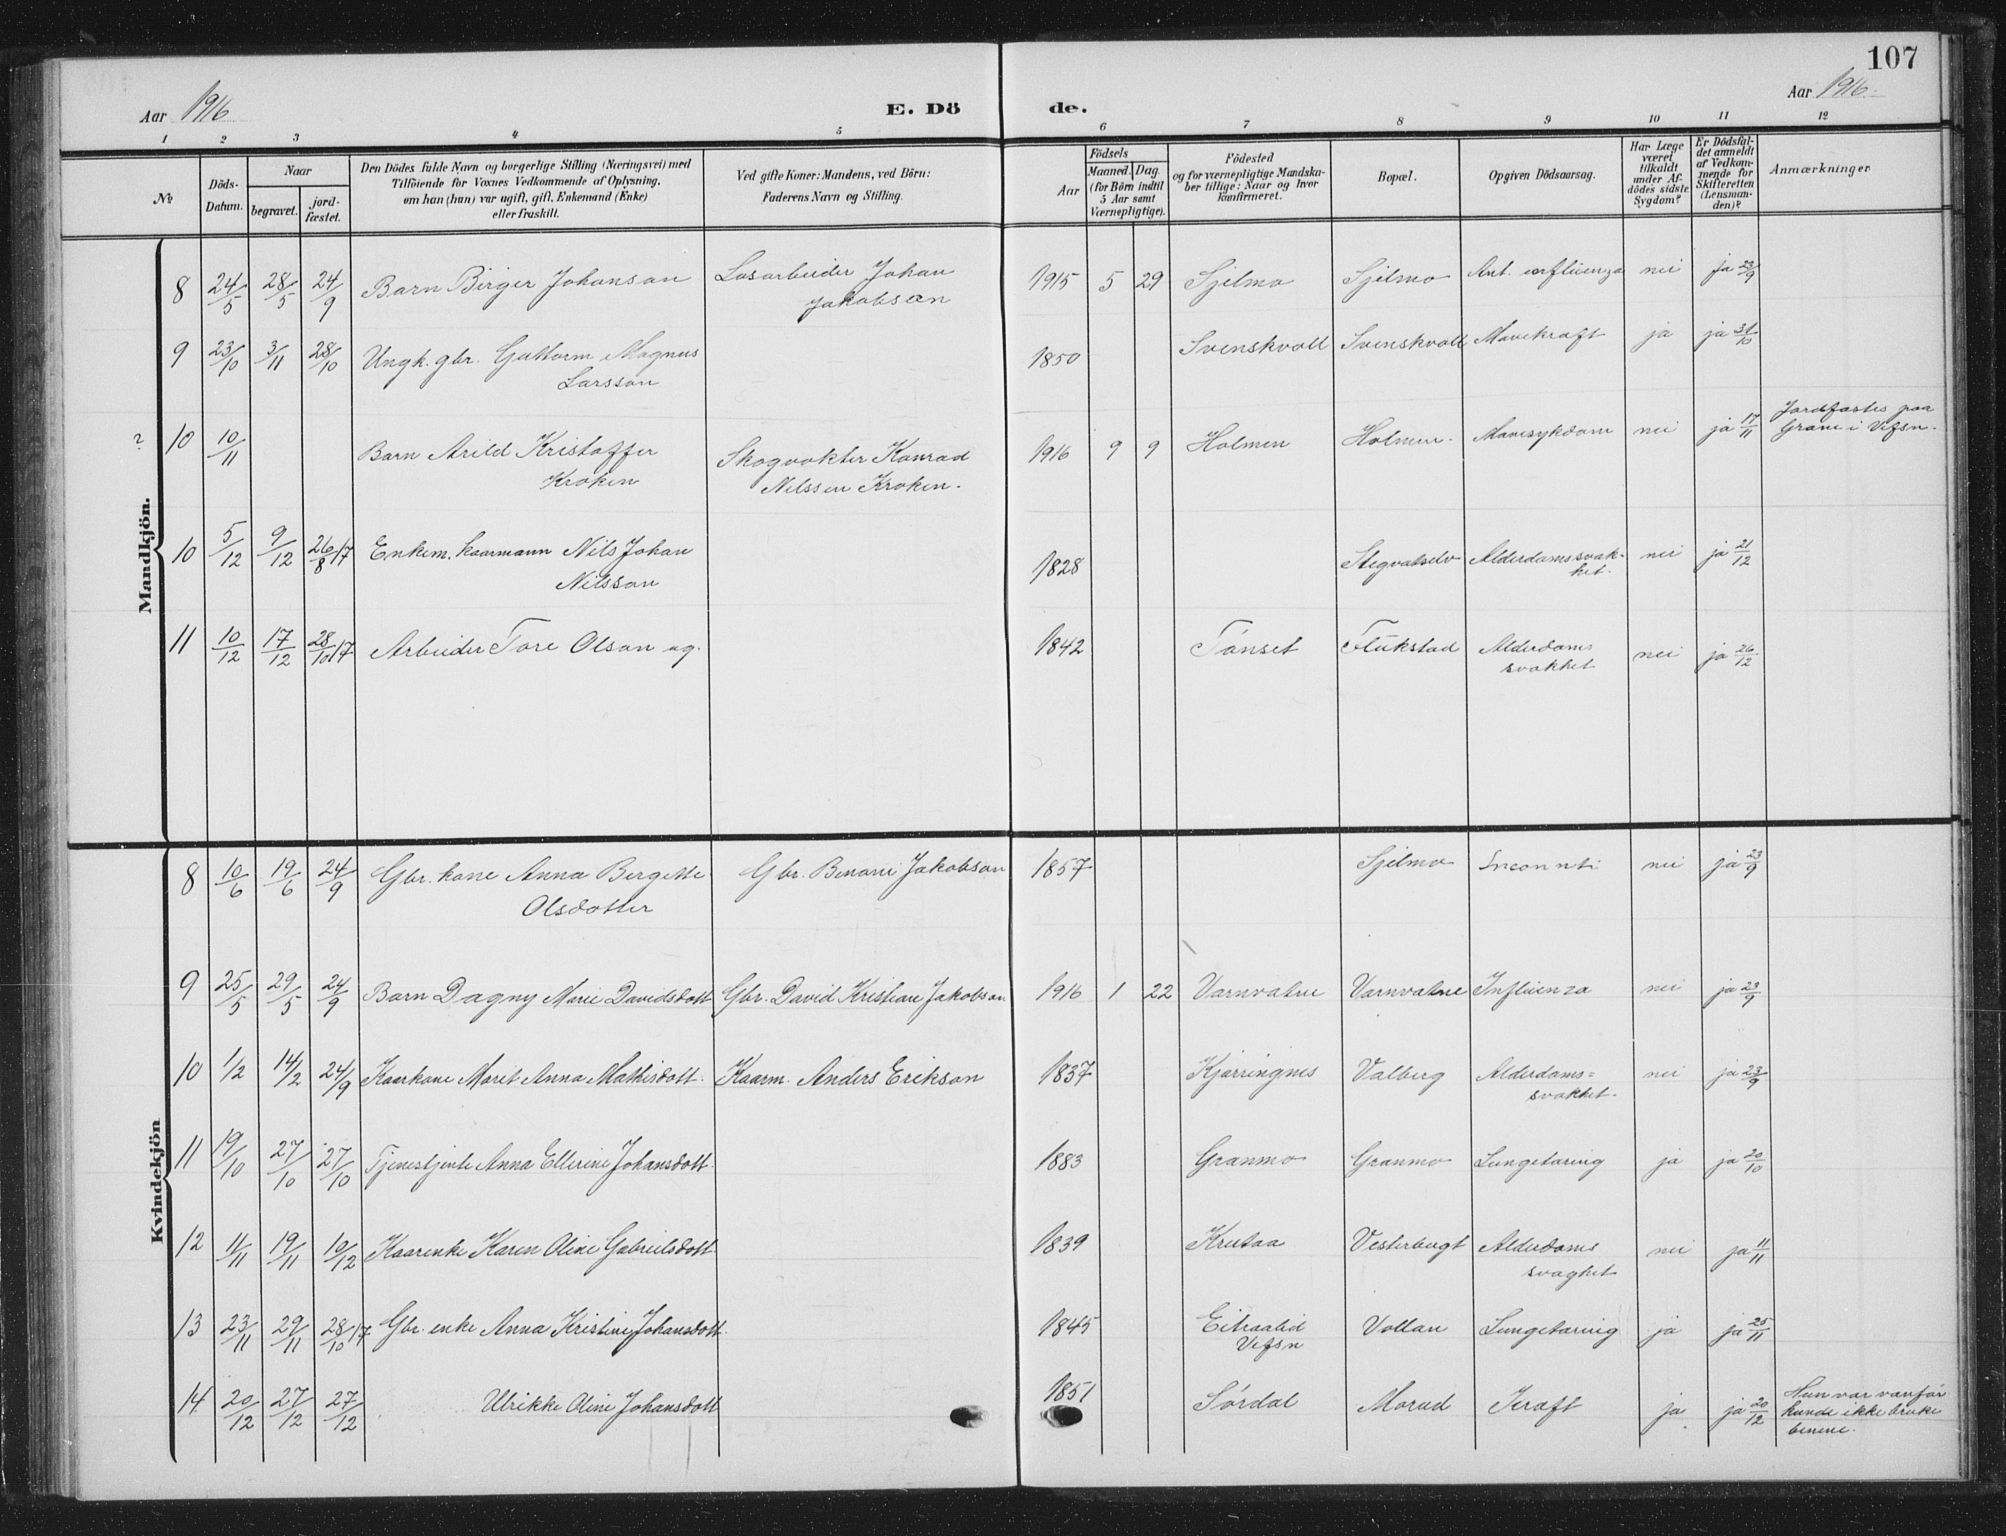 107
Aar 1916
E. Dö
de.
Aar 1916.
1 2 3 4 5 6 7 8 9 10 11 12
№
Döds-
Datum.
Naar
begravet.
jord-
fæstet.
Den Dödes fulde Navn og borgerlige Stilling (Næringsvei) med
Tilföiende for Voxnes Vedkommende af Oplysning,
om han (hun) var ugift, gift, Enkemand (Enke)
eller fraskilt.
Ved gifte Koner: Mandens, ved Börn:
Faderens Navn og Stilling.
Födsels
Aar
Maaned. Dag.
(for Börn indtil
5 Aar samt
Værnepligtige).
Födested
og for værnepligtige Mandska-
ber tillige: Naar og hvor
konfirmeret.
Bopæl.
Opgiven Dödsaarsag.
Har Læge
været
tilkaldt
under Af-
dödes sidste
Sygdom?
Er Dödsfal-
det anmeldt
af Vedkom-
mende for
Skifteretten
(Lensman-
den)?
Anmærkninger
Mandkjön.
8 24/5 28/5 24/9 Barn Birger Johanson Løsarbeider Johan 1915 5 29 Sjelmo Sjelmo Ant. influenza nei ja 23/9
Jakobsen
9 23/10 3/11 28/10 Ungk. gbr. Guttorm Magnus 1850 Svenskvoll Svenskvoll Mavekræft ja ja 31/10
Larsson
? 10 10/11 Barn Arild Kristoffer Skogvokter Konrad 1916 9 9 Holmen Holmen. Mavesykdom nei ja 17/11 Jordfæstes paa
Kroken Nilssen Kroken. Grane i Vefsn.
10 5/12 9/12 26/8 17 Enkem. kaarmann Nils Johan 1828 Stegvatselv Alderdomssvak- nei ja 21/12
Nilsson het.
11 10/12 17/12 28/10 17 Arbeider Tore Olson ug. 1842 Tönset Flukstad Alderdoms nei ja 26/12
svakhet
Kvindekjön
8 10/6 19/6 24/9 Gbr. kone Anna Bergette Gbr. Benoni Jakobson 1857 Sjelmo nei ja 23/9
Olsdotter
9 25/5 29/5 24/9 Barn Dagny Marie Davidsdott Gbr. David Kristian Jakobson 1916 1 22 Varnvatne Varnvatne Influenza nei ja 23/9
10 1/2 14/2 24/9 Kaarkone Marit Anna Mathisdott. Kaarm. Anders Erikson 1837 Kjærringnes Valberg Alderdoms= nei ja 23/9
svakhet.
11 19/10 27/10 27/10 Tjenestjente Anna Ellerine Johansdott. 1883 Granmo Granmo Lungetæring ja ja 20/10
12 11/11 19/11 10/12 Kaarenke Karen Oline Gabrielsdott. 1839 Krutaa Vesterbugt Alderdoms nei ja 11/11
svaghet
13 23/11 29/11 28/10 17 Gbr. enke Anna Kristine Johansdott. 1845 Eiteraalid Vollan Lungetæring ja ja 25/11
Vefsn
14 20/12 27/12 27/12 Ulrikke Oline Johansdott 1851 Sørdal Morud Kræft ja ja 20/12 Hun var vanfør
kunde ikke bruke
benene.